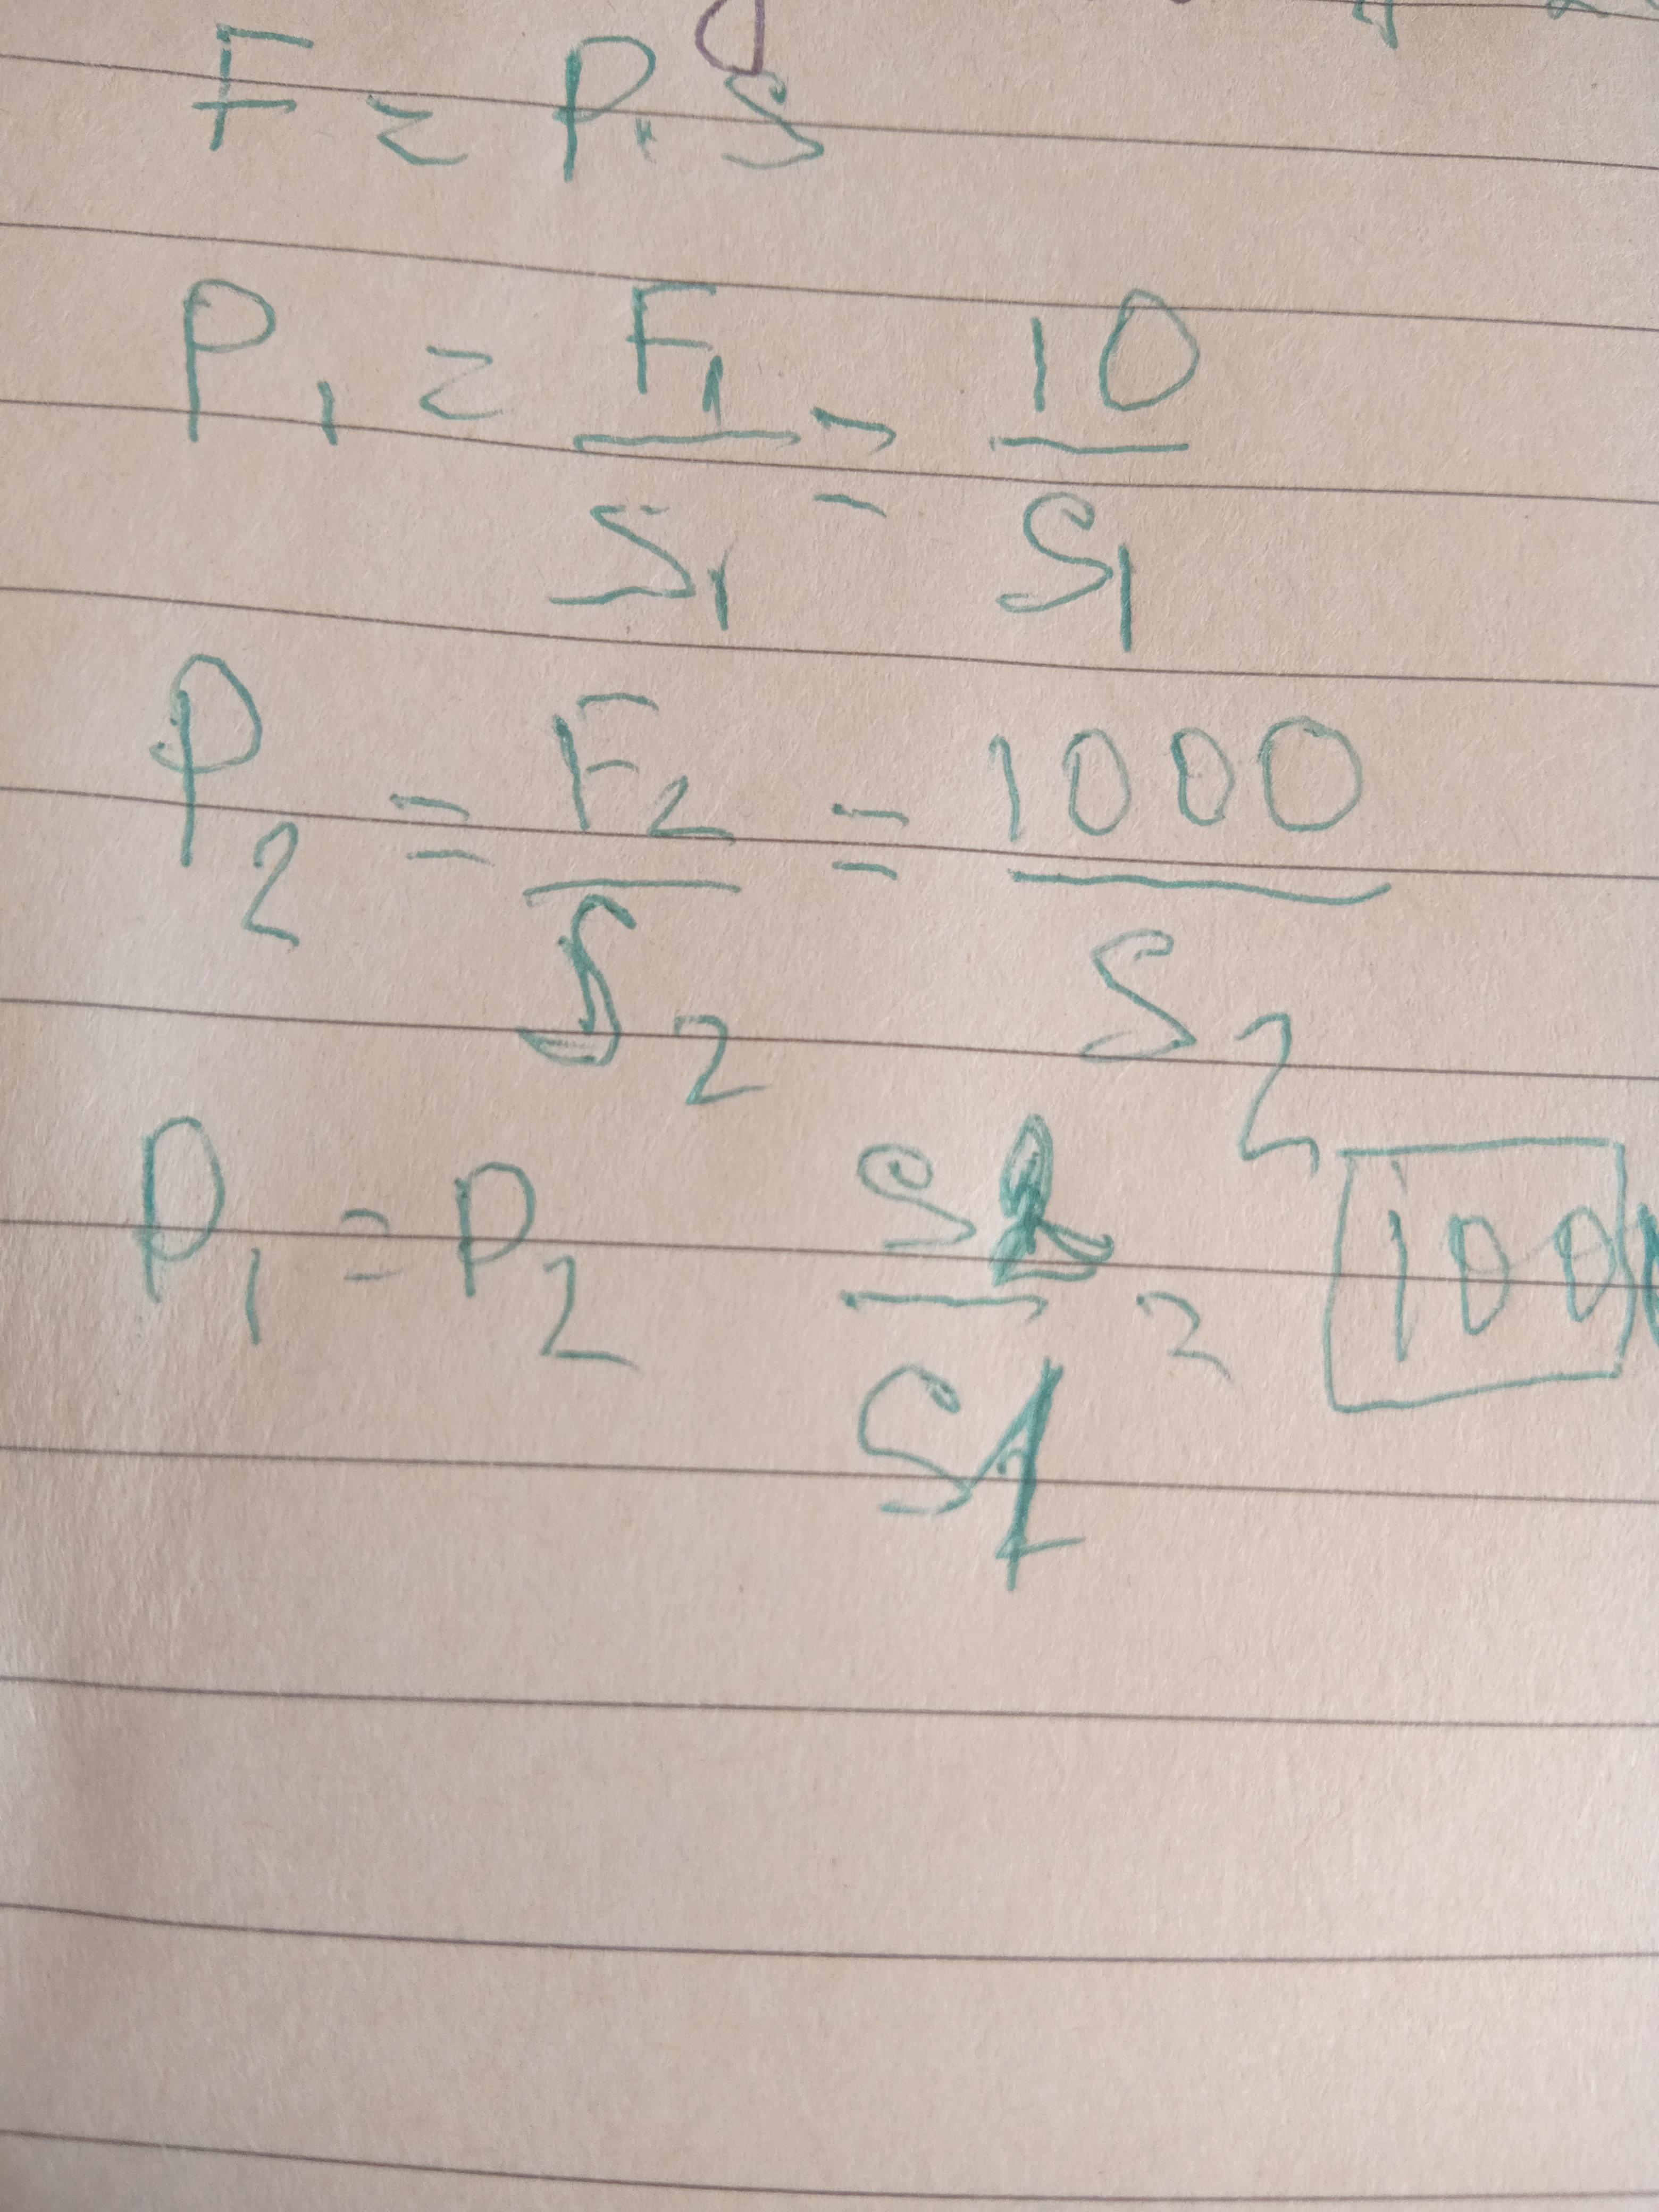 F = P. S
P1 = F1/S1 = 10/S1
P2 = F2/S2 = 1000/S2
P1 = P2 S2/S1 = 100